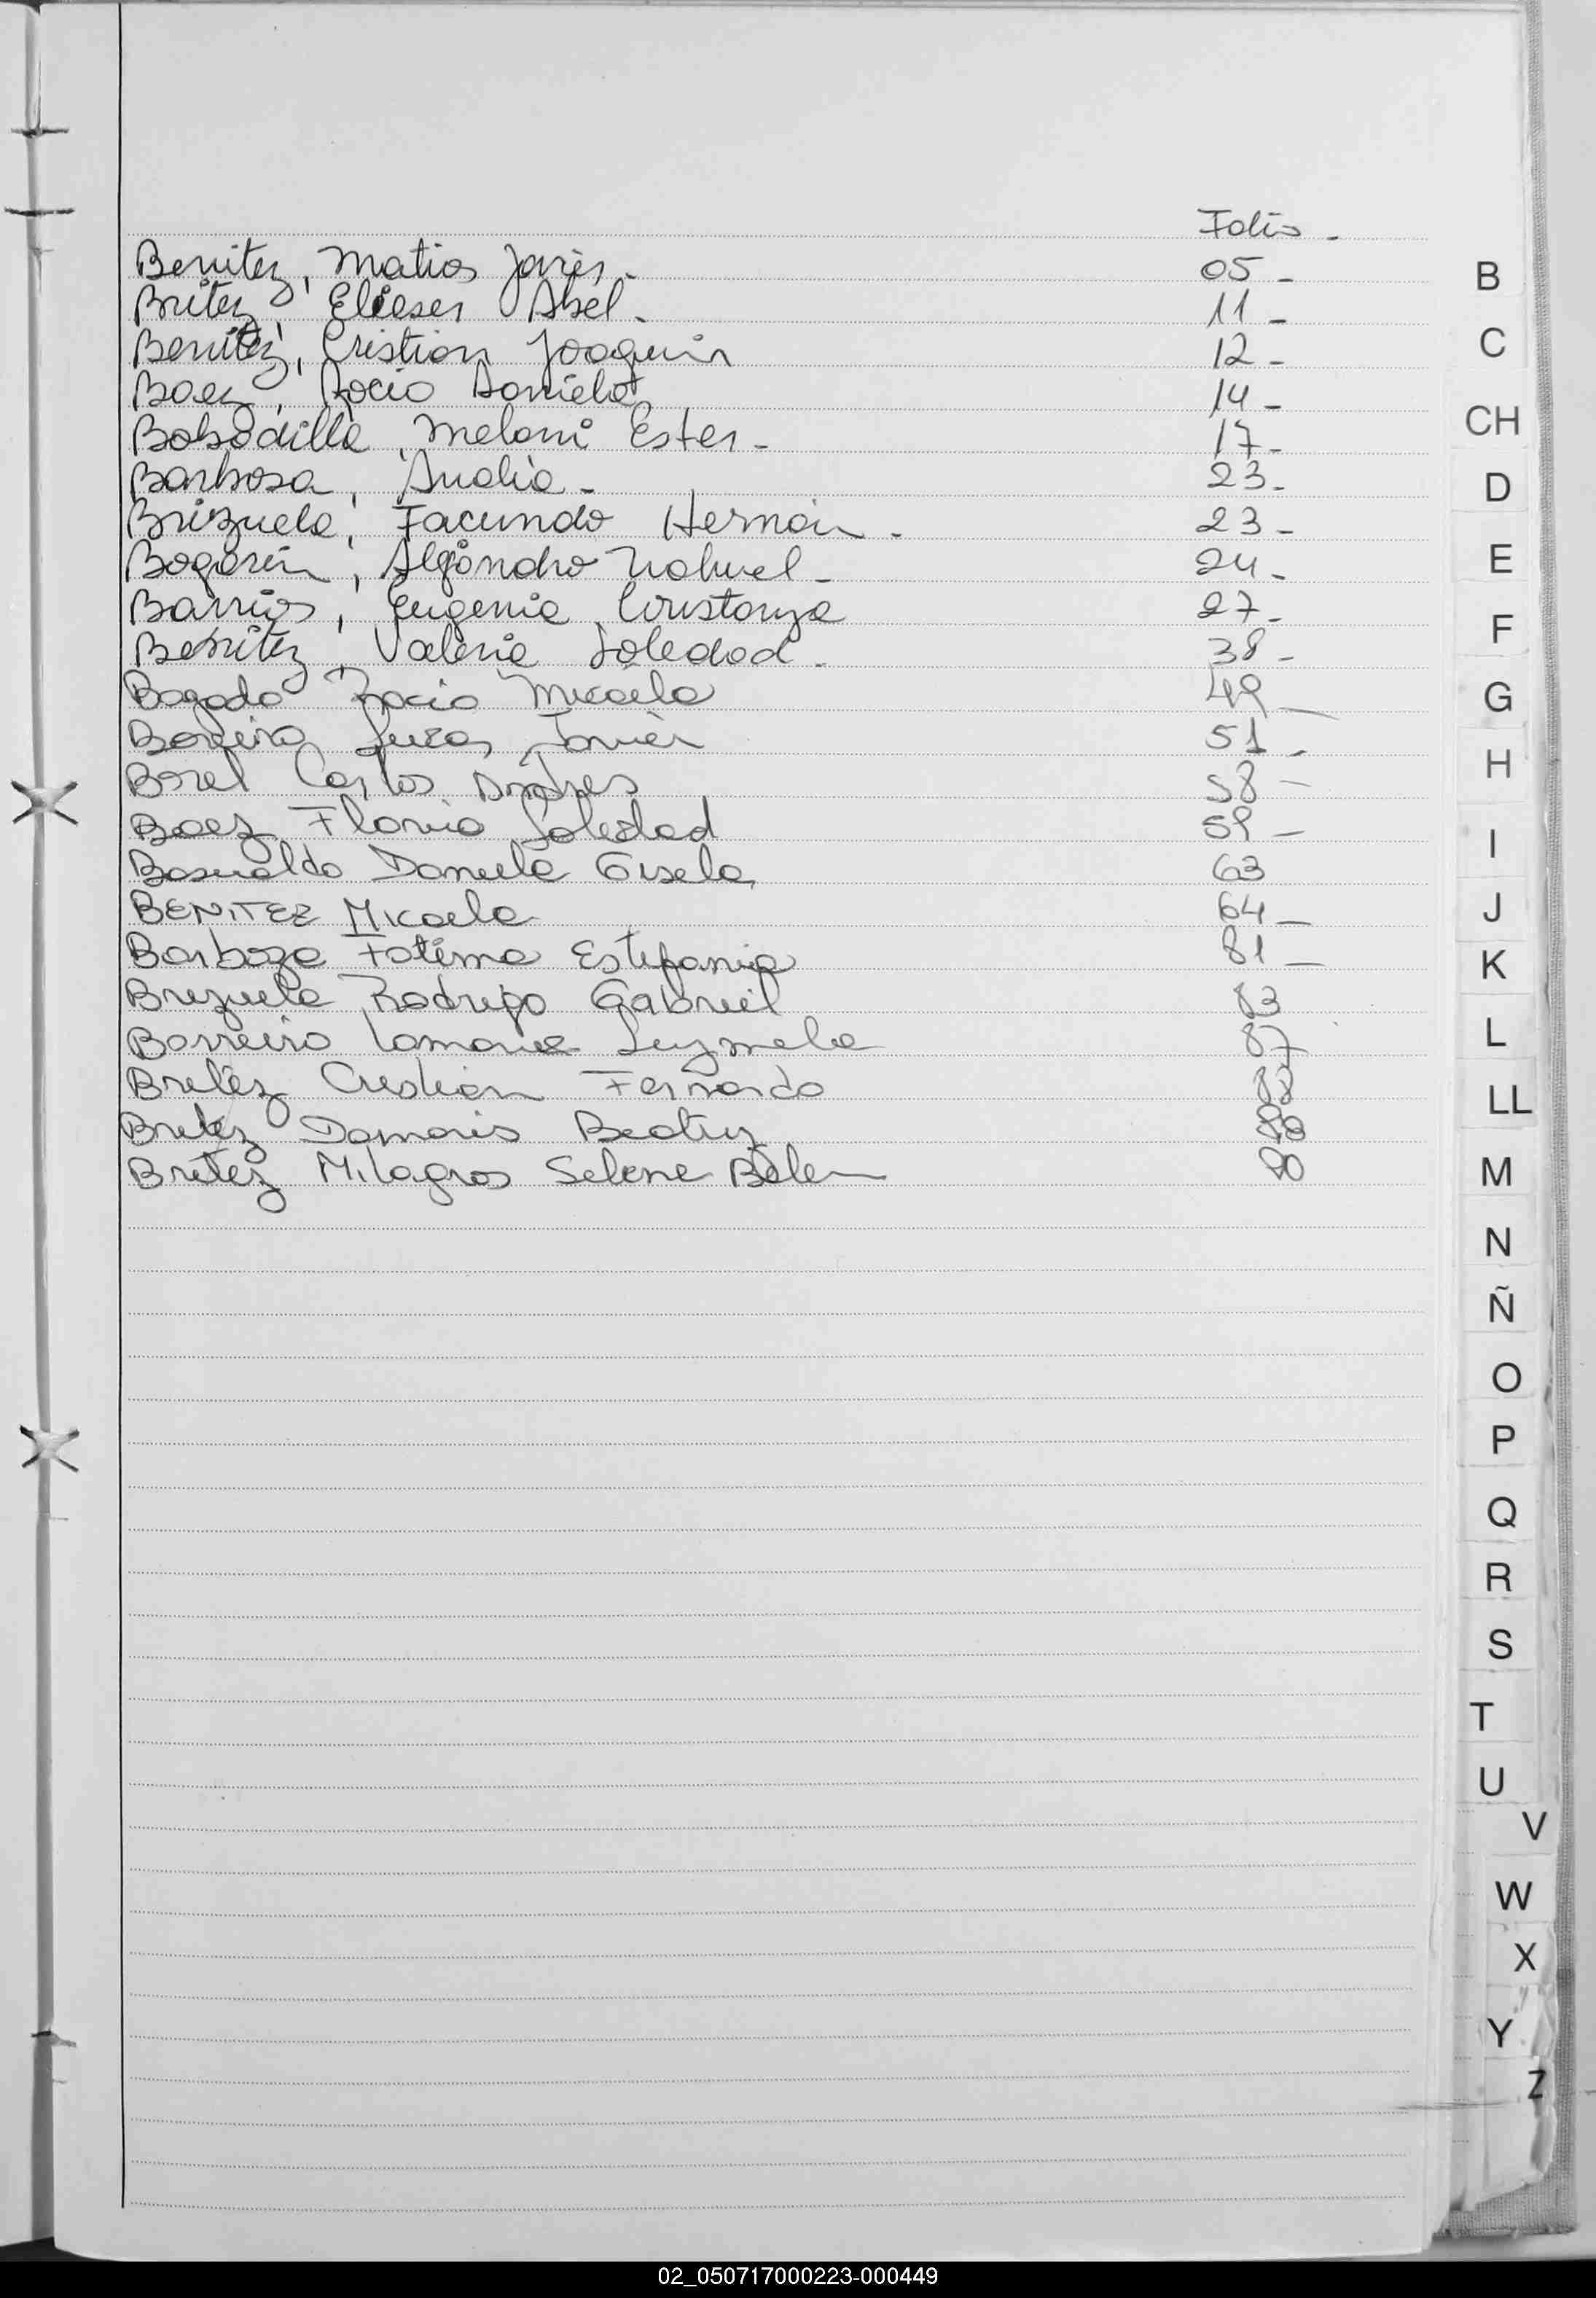 Folio -
Benitez, Matias Javier. 05 -
Britez, Elieser Abel. 11 -
Benitez, Cristian Joaquin 12 -
Baez, Rocio Daniela 14 -
Bobadilla, Melani Ester - 17 -
Barbosa, Analia - 23 -
Brizuela, Facundo Hernán - 23 -
Bogarin, Alejandro Nahuel - 24 -
Barrios, Eugenia Constanza 27 -
Benitez, Valeria Soledad - 38 -
Bogado Rocio Micaela 49 -
Boreiro Lucas Javier 51 -
Borel Carlos Andres 58 -
Baez Flavia Soledad 59 -
Basualdo Daniela Gisela 63
BENITEZ Micaela 64 -
Barboza Fatima Estefania 81 -
Brizuela Rodrigo Gabriel 83
Barreiro Luzmela 87
Britez Cristian Fernando 88
Britez Damaris Beatriz
Britez Milagros Selene Belen 90
B
C
CH
D
E
F
G
H
I
J
K
L
LL
M
N
Ñ
O
P
Q
R
S
T
U
V
W
X
Y
Z
02_050717000223-000449